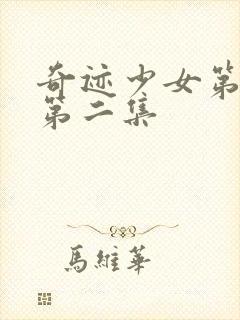 奇迹少女第
第二集
馬維華